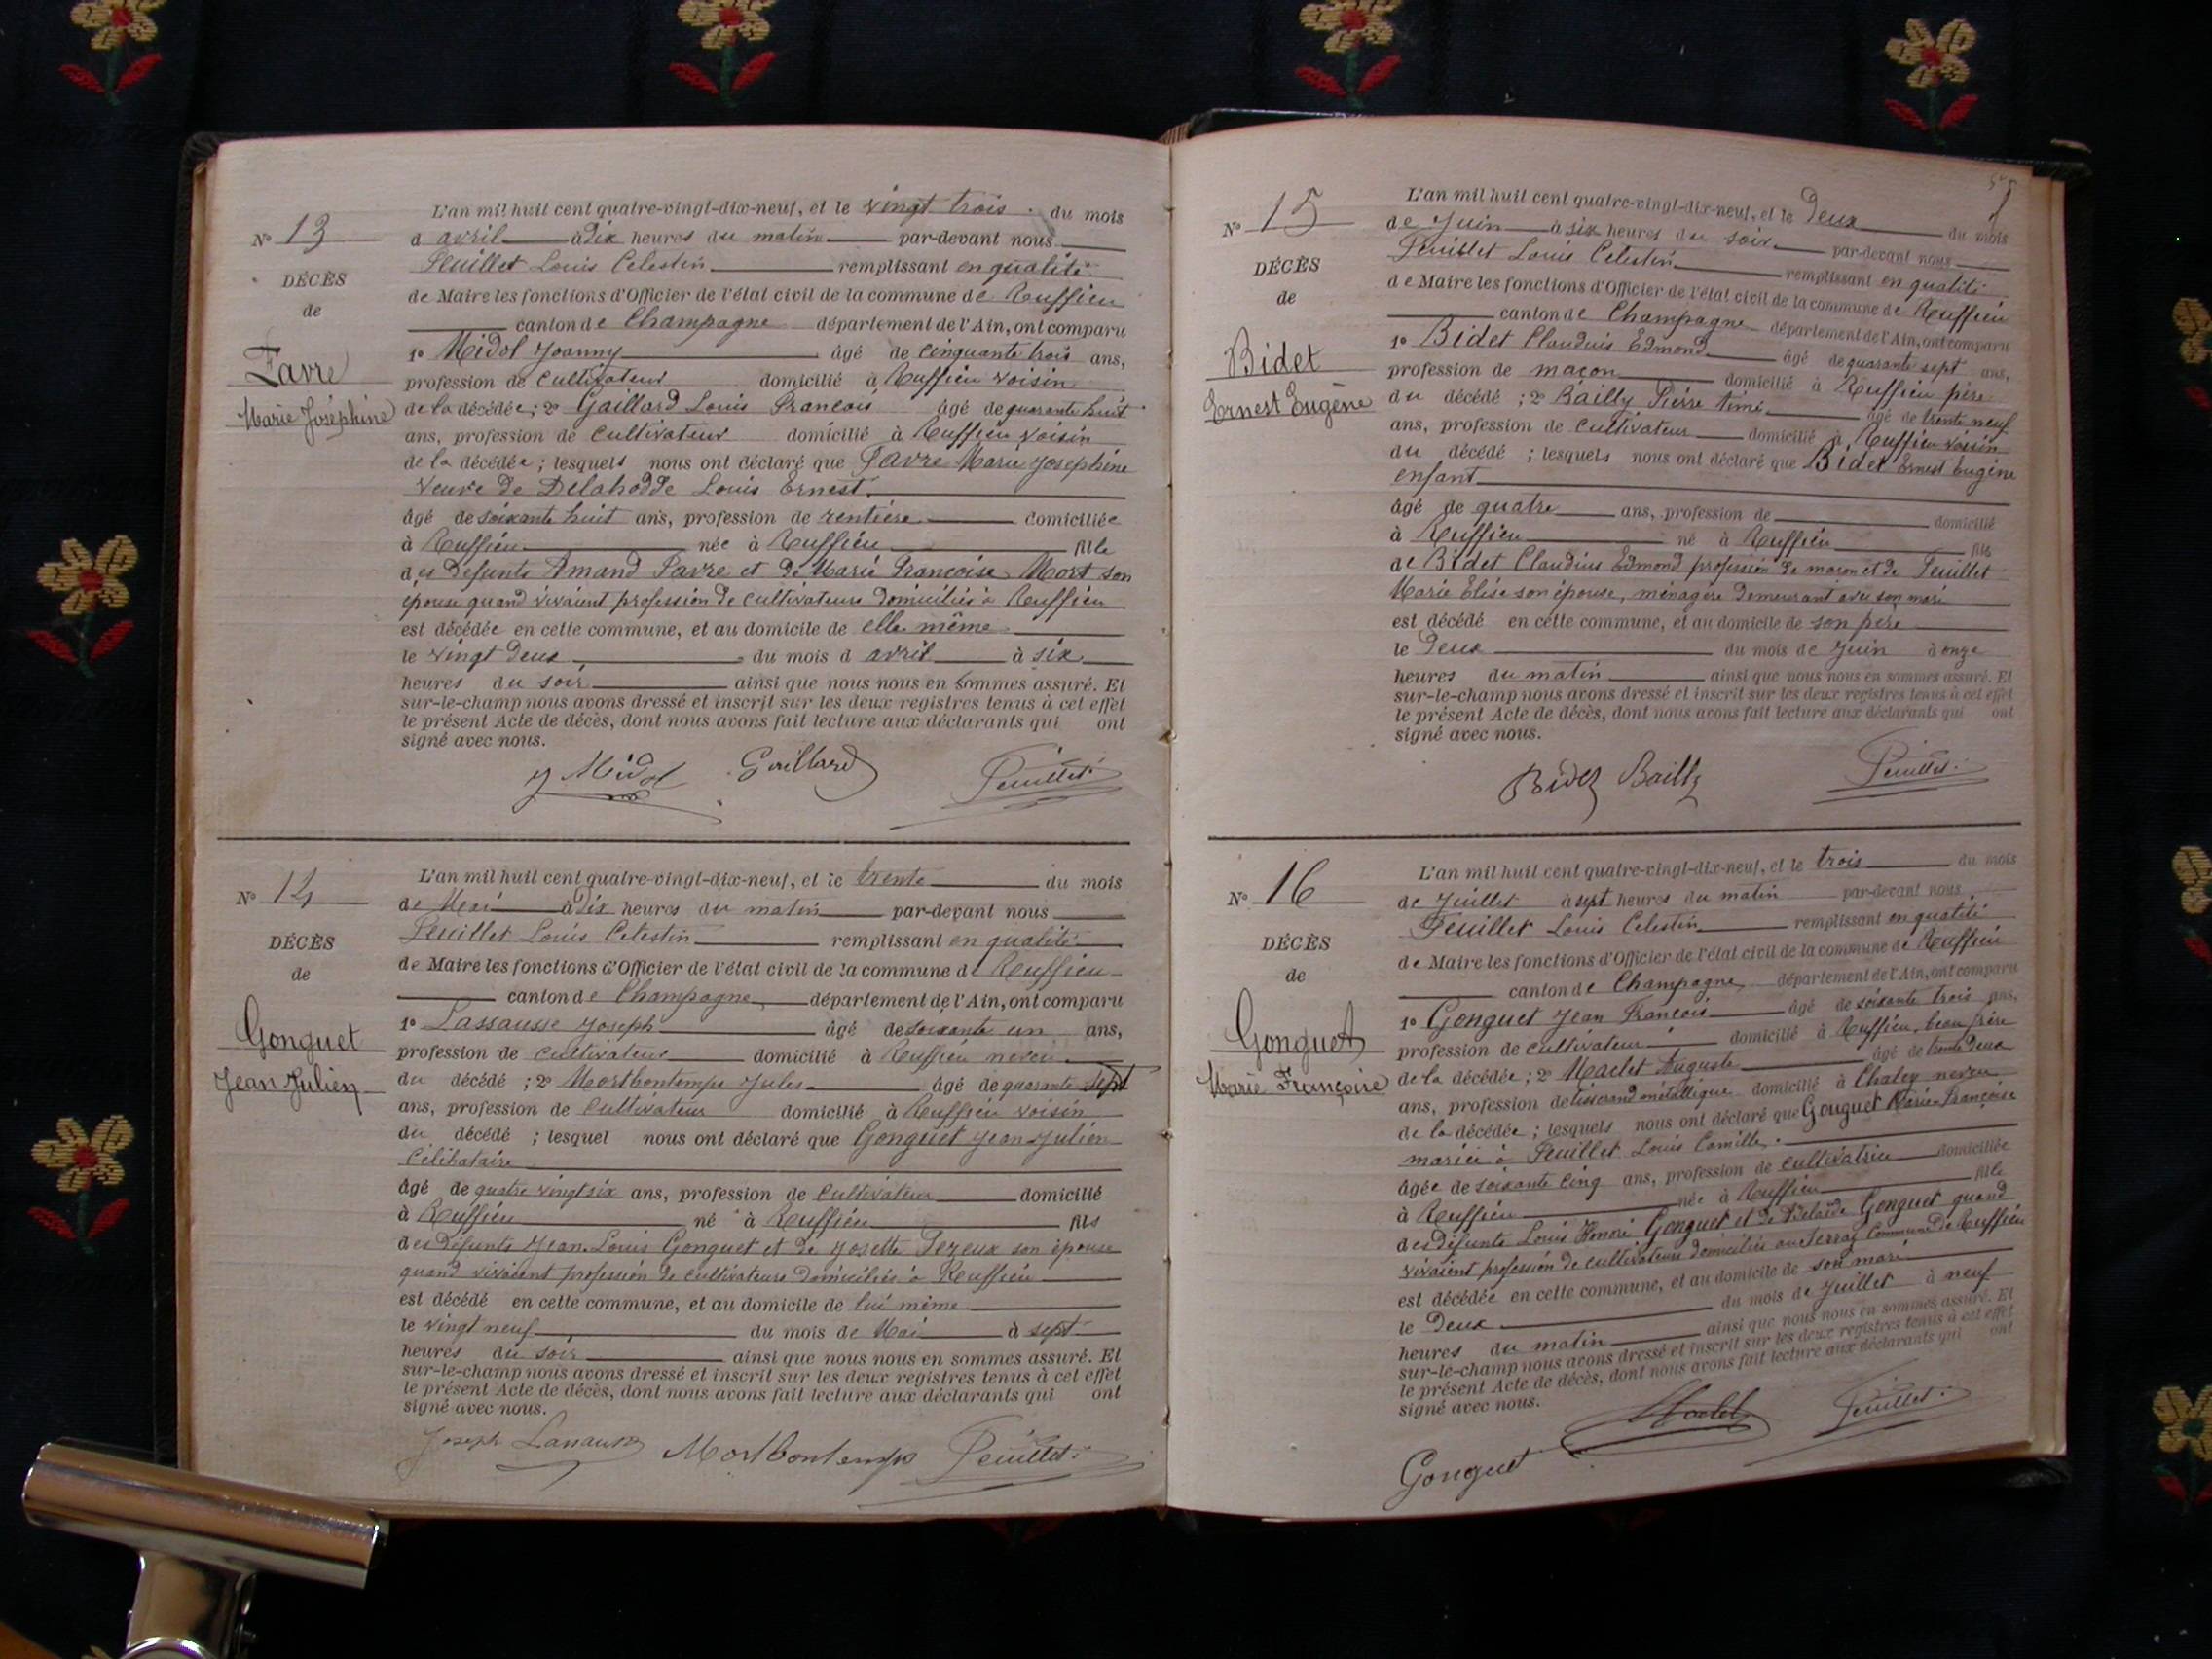 L'an mil huit cent quatre-vingt-dix-neuf, et le vingt trois du mois
d avril à dix heures du matin par-devant nous
Feuillet Louis Celestin remplissant en qualité
de Maire les fonctions d'Officier de l'état civil de la commune de Ruffieu
canton de Champagne département de l'Ain, ont comparu
1o Midol Joanny âgé de cinquante trois ans,
profession de cultivateur domicilié à Ruffieu voisin
de la décédée ; 2o Gaillard Louis François âgé de quarante huit
ans, profession de cultivateur domicilié à Ruffieu voisin
de la décédée ; lesquels nous ont déclaré que Favre Marie Josephine
veuve de Delahodde Louis Ernest.
âgé de soixante huit ans, profession de rentière domiciliée
à Ruffieu née à Ruffieu fille
des défunts Amand Favre et de Marie Françoise Mort son
épouse quand vivaient profession de cultivateurs domiciliés à Ruffieu
est décédée en cette commune, et au domicile de elle même
le vingt deux du mois d avril à six
heures du soir ainsi que nous nous en sommes assuré. Et
sur-le-champ nous avons dressé et inscrit sur les deux registres tenus à cet effet
le présent Acte de décès, dont nous avons fait lecture aux déclarants qui ont
signé avec nous.
J Midol Gaillard Feuillet
No 13
DÉCÈS
de
Favre
Marie Joséphine
No 14
DÉCÈS
de
Gonguet
Jean Julien
L'an mil huit cent quatre-vingt-dix-neuf, et le trente du mois
de Mai à dix heures du matin par-devant nous
Feuillet Louis Celestin remplissant en qualité
de Maire les fonctions d'Officier de l'état civil de la commune de Ruffieu
canton de Champagne département de l'Ain, ont comparu
1o Lassausse Joseph âgé de soixante un ans,
profession de cultivateur domicilié à Ruffieu neveu
du décédé ; 2o Mortbontemps Jules âgé de quarante sept
ans, profession de cultivateur domicilié à Ruffieu voisin
du décédé ; lesquel nous ont déclaré que Gonguet Jean Julien
Célibataire
âgé de quatre vingt six ans, profession de cultivateur domicilié
à Ruffieu né à Ruffieu fils
des défunts Jean Louis Gonguet et de Josette son épouse
quand vivaient profession de cultivateurs domiciliés à Ruffieu
est décédé en cette commune, et au domicile de lui même
le vingt neuf du mois de Mai à sept
heures du soir ainsi que nous nous en sommes assuré. Et
sur-le-champ nous avons dressé et inscrit sur les deux registres tenus à cet effet
le présent Acte de décès, dont nous avons fait lecture aux déclarants qui ont
signé avec nous.
Joseph Mortbontemps Feuillet
No 15
DÉCÈS
de
Bidet
Ernest Eugène
L'an mil huit cent quatre-vingt-dix-neuf, et le Deux du mois
de Juin à six heures du soir par-devant nous
Feuillet Louis Celestin remplissant en qualité
de Maire les fonctions d'Officier de l'état civil de la commune de Ruffieu
canton de Champagne département de l'Ain, ont comparu
1o Bidet Claudius Edmond âgé de quarante sept ans,
profession de maçon domicilié à Ruffieu père
du décédé ; 2o Bailly Pierre Aimé âgé de trente neuf
ans, profession de cultivateur domicilié à Ruffieu voisin
du décédé ; lesquels nous ont déclaré que Bidet Ernest Eugène
enfant
âgé de quatre ans, profession de domicilié
à Ruffieu né à Ruffieu fils
de Bidet Claudius Edmond profession de maçon et de Feuillet
Marie Elise son épouse, ménagère demeurant avec son mari
est décédé en cette commune, et au domicile de son père
le Deux du mois de Juin à onze
heures du matin ainsi que nous nous en sommes assuré. Et
sur-le-champ nous avons dressé et inscrit sur les deux registres tenus à cet effet
le présent Acte de décès, dont nous avons fait lecture aux déclarants qui ont
signé avec nous.
Bidet Bailly Feuillet
No 16
DÉCÈS
de
Gonguet
Marie Françoise
L'an mil huit cent quatre-vingt-dix-neuf, et le trois du mois
de Juillet à sept heures du matin par-devant nous
Feuillet Louis Celestin remplissant en qualité
de Maire les fonctions d'Officier de l'état civil de la commune de Ruffieu
canton de Champagne département de l'Ain, ont comparu
1o Gonguet Jean François âgé de soixante trois ans,
profession de cultivateur domicilié à Ruffieu, beau frère
de la décédée ; 2o Maclet Auguste âgé de trente deux
ans, profession de tisserand métallique domicilié à Chaley neveu
de la décédée ; lesquels nous ont déclaré que Gonguet Marie-Françoise
mariée à Feuillet Louis Camille.
âgée de soixante cinq ans, profession de cultivatrice domiciliée
à Ruffieu née à Ruffieu fille
des défunts Louis Honoré Gonguet et de Gonguet quand
vivaient profession de cultivateurs domiciliés au commune de Ruffieu
est décédée en cette commune, et au domicile de son mari
le Deux du mois de Juillet à neuf
heures du matin ainsi que nous nous en sommes assuré. Et
sur-le-champ nous avons dressé et inscrit sur les deux registres tenus à cet effet
le présent Acte de décès, dont nous avons fait lecture aux déclarants qui ont
signé avec nous.
Gonguet Maclet Feuillet